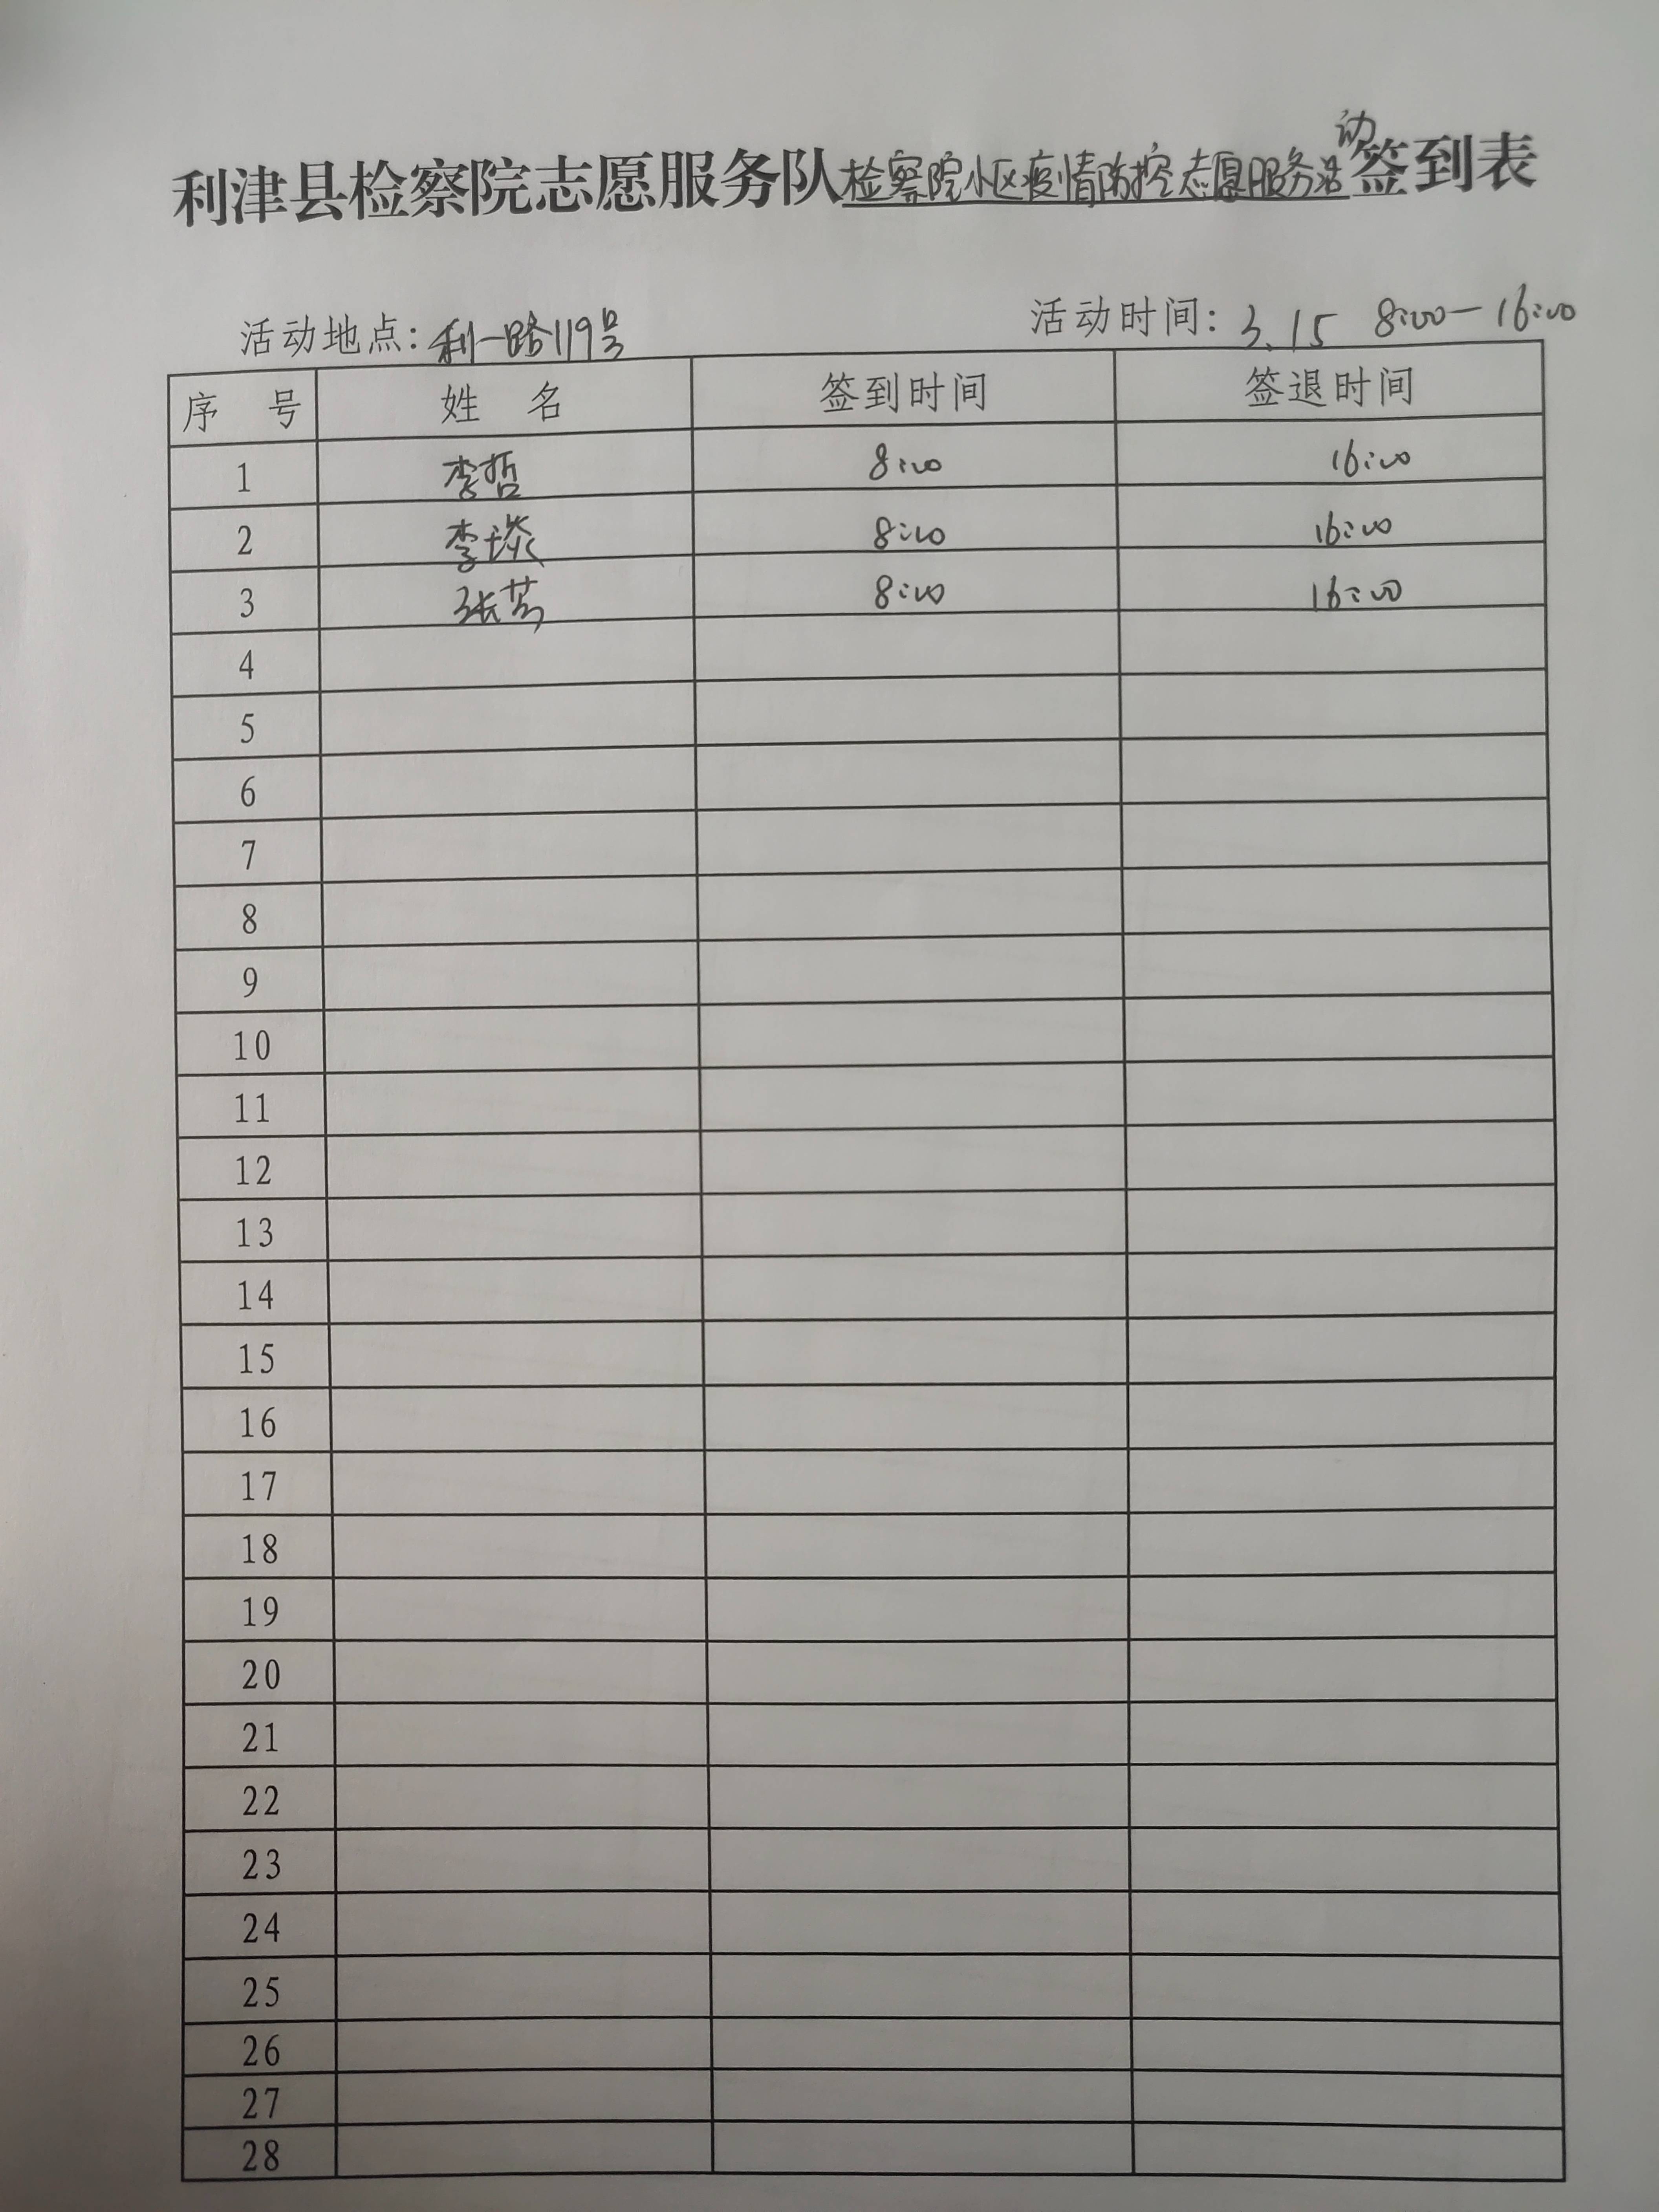 利津县检察院志愿服务队检察院小区疫情防控志愿服务活动签到表
活动地点:利一路119号 活动时间:3.15 8:00-16:00
序 号 姓 名 签到时间 签退时间
1 李哲 8:00 16:00
2 李琰 8:00 16:00
3 8:00 16:00
4
5
6
7
8
9
10
11
12
13
14
15
16
17
18
19
20
21
22
23
24
25
26
27
28